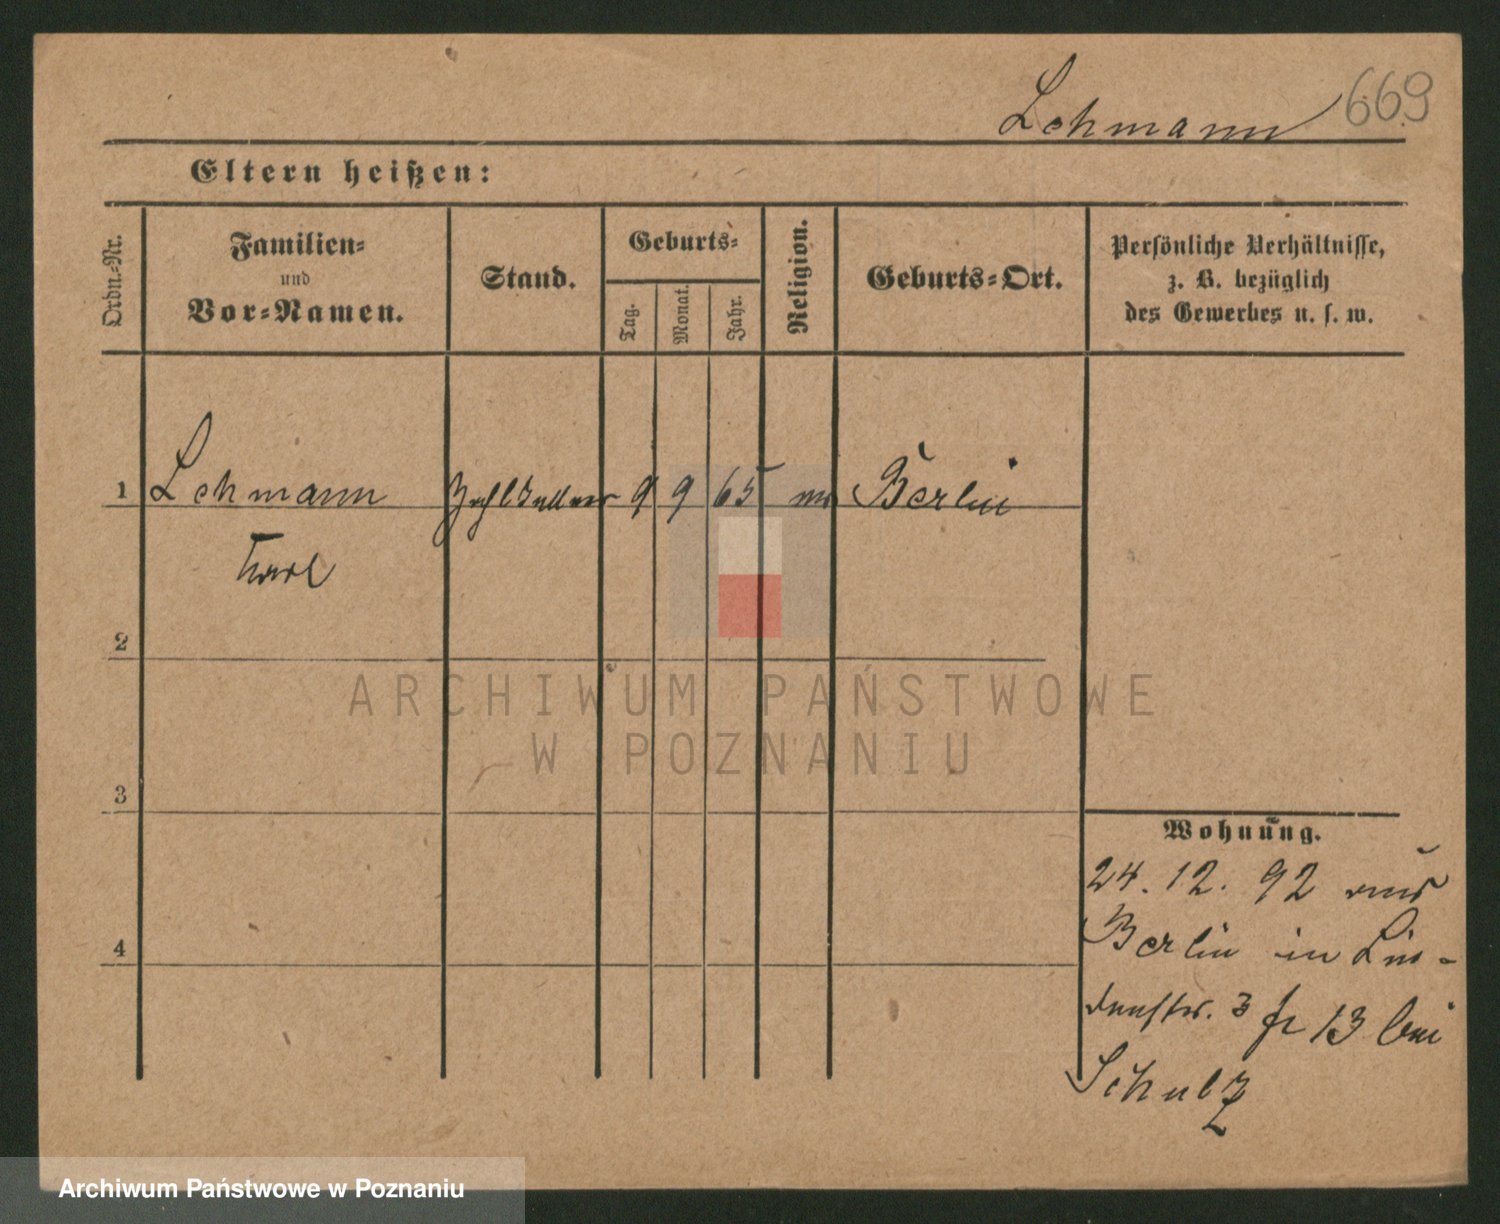 Lehmann 669
Eltern heißen:
Ordn.-Nr.
Familien-
und
Vor-Namen.
Stand.
Geburts-
Tag.
Monat.
Jahr.
Religion.
Geburts-Ort.
Persönliche Verhältnisse,
z. B. bezüglich
des Gewerbes u. s. w.
1 Lehmann Zahlkellner 9 9 65 Berlin
Karl
2
3
4
Wohnung.
24. 12. 92 aus
Berlin in Lin-
denstr. 3 fr 13 bei
Schulz
ARCHIWUM PAŃSTWOWE
W POZNANIU
Archiwum Państwowe w Poznaniu